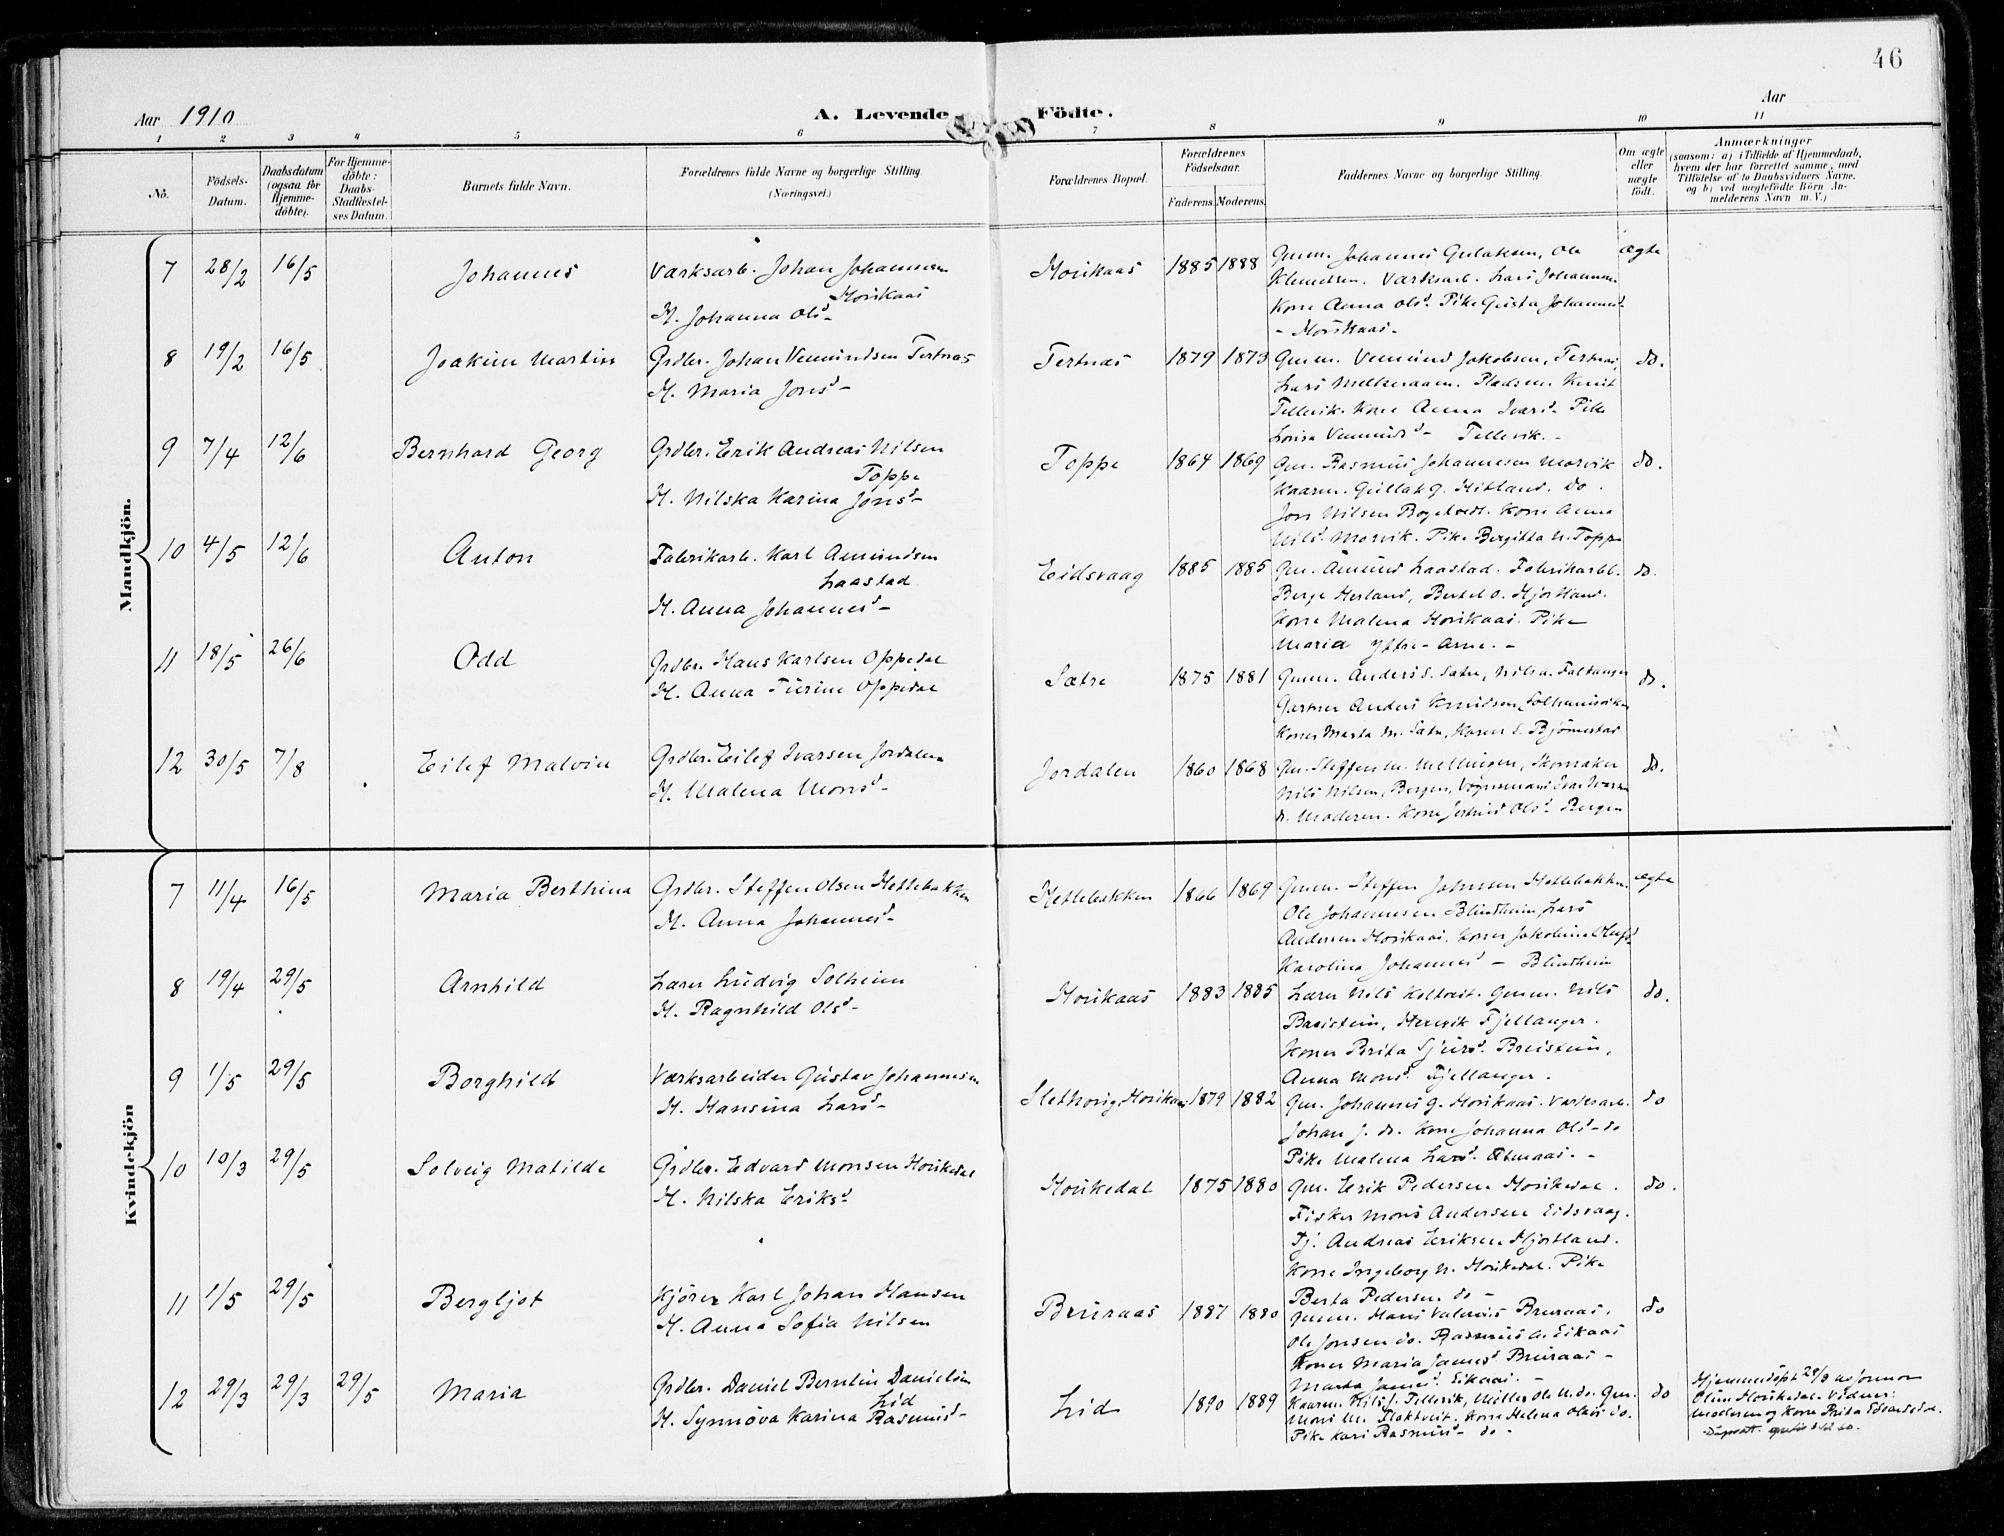 46
Aar 1910
A. Levende Födte.
Aar
1 2 3 4 5 6 7 8 9 10 11
No.
Födsels-Datum.
Daabsdatum (ogsaa for Hjemme-döbte).
For Hjemme-döbte: Daabs-Stadfæstel-ses Datum.
Barnets fulde Navn.
Forældrenes fulde Navne og borgerlige Stilling (Næringsvei.)
Forældrenes Bopæl.
Forældrenes Födselsaar.
Faderens. Moderens.
Faddernes Navne og borgerlige Stilling.
Om ægte eller uægte födt.
Anmærkninger
(saasom: a) i Tilfælde af Hjemmedaab,
hvem der har forrettet samme, med
Tilföielse af to Daabsvidners Navne.
og b) ved uægtefödte Börn An-
melderens Navn m. V.)
Mandkjön.
7 28/2 16/5 Johannes
Værksarb. Johan Johannesen
Horikaas
H. Johanna Olsd-
Horikaas 1885 1888
Gmm. Johannes Gulaksen, Ole
Klemetsen. Værksarb. Lars Johannes.
Kone Anna Olsd. Pike Gusta Johannesd-
- Horikaas-
ægte
8 19/2 16/5 Joakim Martin
Grdbr. Johan Vemundsen Tertnæs
H. Maria Jonsd-
Tertnæs 1879 1873
Gmm. Vemund Jakobsen, Tertnæs,
Lars Pladsen. Knut
Tellevik. Kone Anna Ivarsd- Pike
Lovisa Vemundsd- Tellevik.-
do.
9 7/4 12/6 Bernhard Georg
Grdbr. Erik Andreas Nilsen
Toppe
H. Nilska Karina Jonsd-
Toppe 1864 1869
Gm. Rasmus Johannesen Morvik
Kaarm. Gullak G. Hitland. do.
Jon Nilsen Kone Anna
Nilsd. Morvik. Pike Bergitta N. Toppe
do.
10 4/5 12/6 Anton
Fabrikarb. Karl Amundsen
Laastad
H. Anna Johannesd-
Eidsvaag 1885 1885
Gm. Amund Laastad. Fabrikarbb.
Berge Herland, Bertel O. Hjortland.
Kone Malena Horikaas. Pike
Maria Ytre-Arne.-
do.
11 18/5 26/6 Odd
Grdbr. Hans Karlsen Oppedal
H. Anna Turine Oppedal
Sætre 1875 1881
Gmm. Anders S. Sætre, Nils A. Faltanger
Gartner Anders Knudsen,
Koner Marta M. Sætre, Karen S. Bjørnestad
do.
12 30/5 7/8 Eilef Malvin
Grdbr. Eilef Ivarsen Jordalen
H. Malena Monsd-
Jordalen 1860 1868
Gm. Steffen M. Mellingen, Skomaker
Nils Nilsen, Bergen, Vognmand Ivar Ivarsen
do. Moderen. Kone Jertrud Olsd. Bergen
do.
Kvindekjön
7 11/4 16/5 Maria Berthina
Grdbr. Steffen Olsen Hetlebakken
H. Anna Johannesd-
Hetlebakken 1866 1869
Gmm. Steffen Johnsen Hetlebakken.
Ole Johannesen Blindheim, Lars
Andersen Horikaas. Koner Jakobina Olufsd.
Karolina Johannesd- Blindheim
ægte
8 19/4 29/5 Arnhild
Lærer Ludvig Solheim
H. Ragnhild Olsd-
Horikaas 1883 1885
Lærer Nils Gmm. Nils
Breistein, Henrik Fjellanger.
Koner Brita Sjursd. Breistein,
Anna Monsd. Fjellanger.
do.
9 1/5 29/5 Borghild
Værksarbeider Gustav Johannesen
H. Hansina Larsd-
Horikaas 1879 1882
Gm. Johannes G. Horikaas. Værksarb.
Johan J. do. Kone Johanna Olsd-do
Pike Malena Larsd. Almaas.-
do
10 10/3 29/5 Solveig Matilde
Grdbr. Edvard Monsen Horikedal
H. Nilska Eriksd
Horikedal 1875 1880
Gm. Erik Pedersen Horikedal.
Fisker Mons Andersen Eidsvaag.
Tj. Andreas Eriksen Hjortland.
Kone Ingeborg N. Horikedal. Pike
Berta Pedersen do-
do.
11 1/5 29/5 Bergljot
Kjører Karl Johan Hansen
H. Anna Sofia Nilsen
Bruraas 1887 1880
Gmm. Hans Bruraas.
Ole Jonsen do. Rasmus A. Eikaas
Koner Maria Bruraas-
Marta Eikaas.-
do
12 29/3 29/3 29/5 Maria
Grdbr. Daniel Berntin Danielsen
Lid
H. Synnøva Karina Rasmusd-
Lid 1890 1889
Kaarm. Nils J. Tellevik, Møller Ole N. do. Gm.
Mons M. Flaktveit. Kone Helena Olsd do.
Pike Kari Rasmusd- do-
do
Hjemmedøpt 29/3 av Jormor
Horikedal. Vidner:
Moderen og Kone Brita